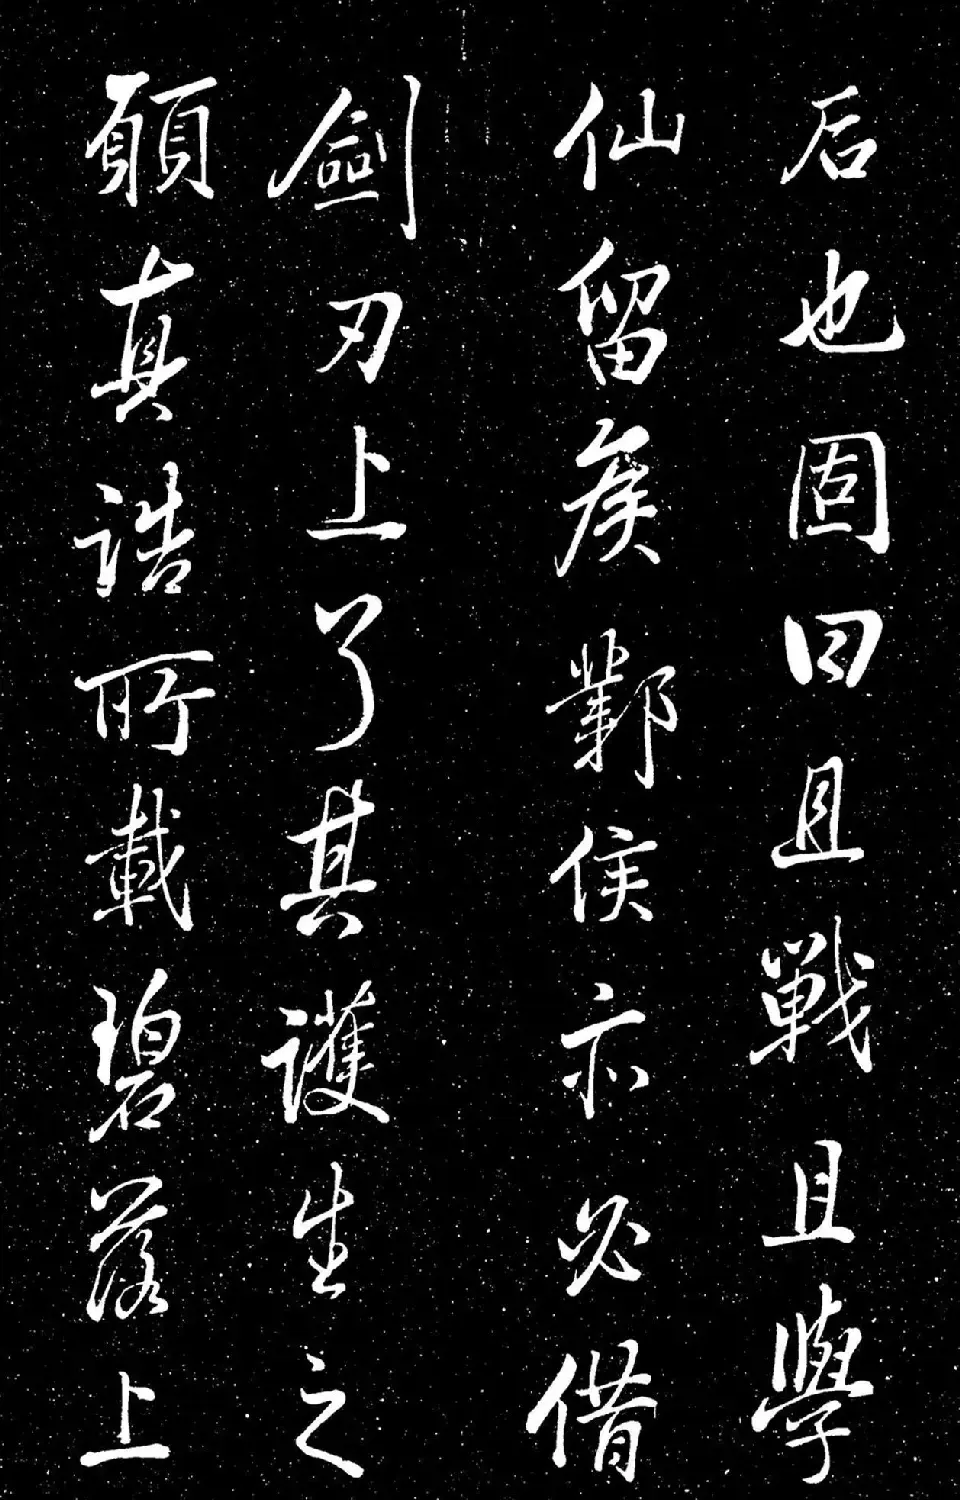 后也固曰且戰且學
仙留矦鄴侯亦必借
劍刃上了其護生之
願真誥所載碧落上